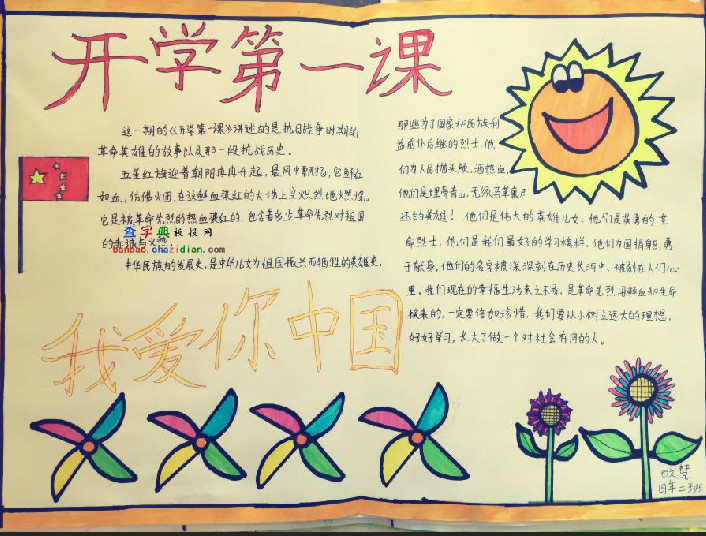 开学第一课
这一期的《开学第一课》讲述的是抗日战争时期的
革命英雄的故事以及那一段抗战历史.
五星红旗迎着朝阳冉冉升起,晨风中飘扬,它鲜红
如血,仿佛火团,在这鲜血染红的大地上炎烈地燃烧。
它是革命先烈的热血染红的,包含着多少革命先烈对祖国
的忠诚与
中华民族的发展史,是中华儿女为祖国振兴而牺牲的英雄史.
查字典板报网
banbao.chazidian.com
那些为了国家和民族利
益前仆后继的烈士,他
们为人民抛头颅、洒热血,
他们是埋骨青山、无须马革裹尸
还的英雄!他们是伟大的英雄儿女,他们是英勇的革
命烈士,他们是我们最好的学习榜样,他们为国捐躯,勇
于献身,他们的名字被深深刻在历史长河中,被刻在人们心
里。我们现在的幸福生活来之不易,是革命先烈用鲜血和生命
换来的,一定要倍加珍惜,我们要从小树立远大的理想,
好好学习,长大了做一个对社会有用的人。
我爱你中国
四年二班